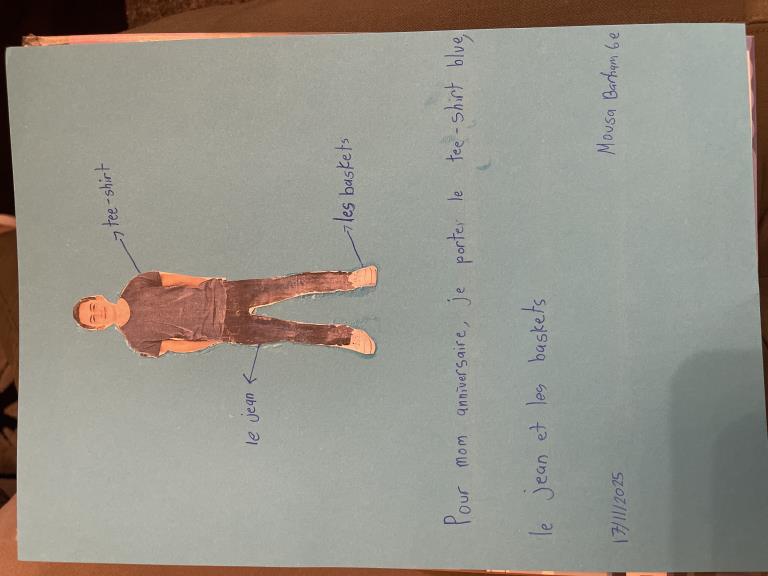 tee-shirt
le jean
les baskets
Pour mom anniversaire, je porter le tee-shirt blue,
le jean et les baskets
17/11/2025
Mousa Barham 6e